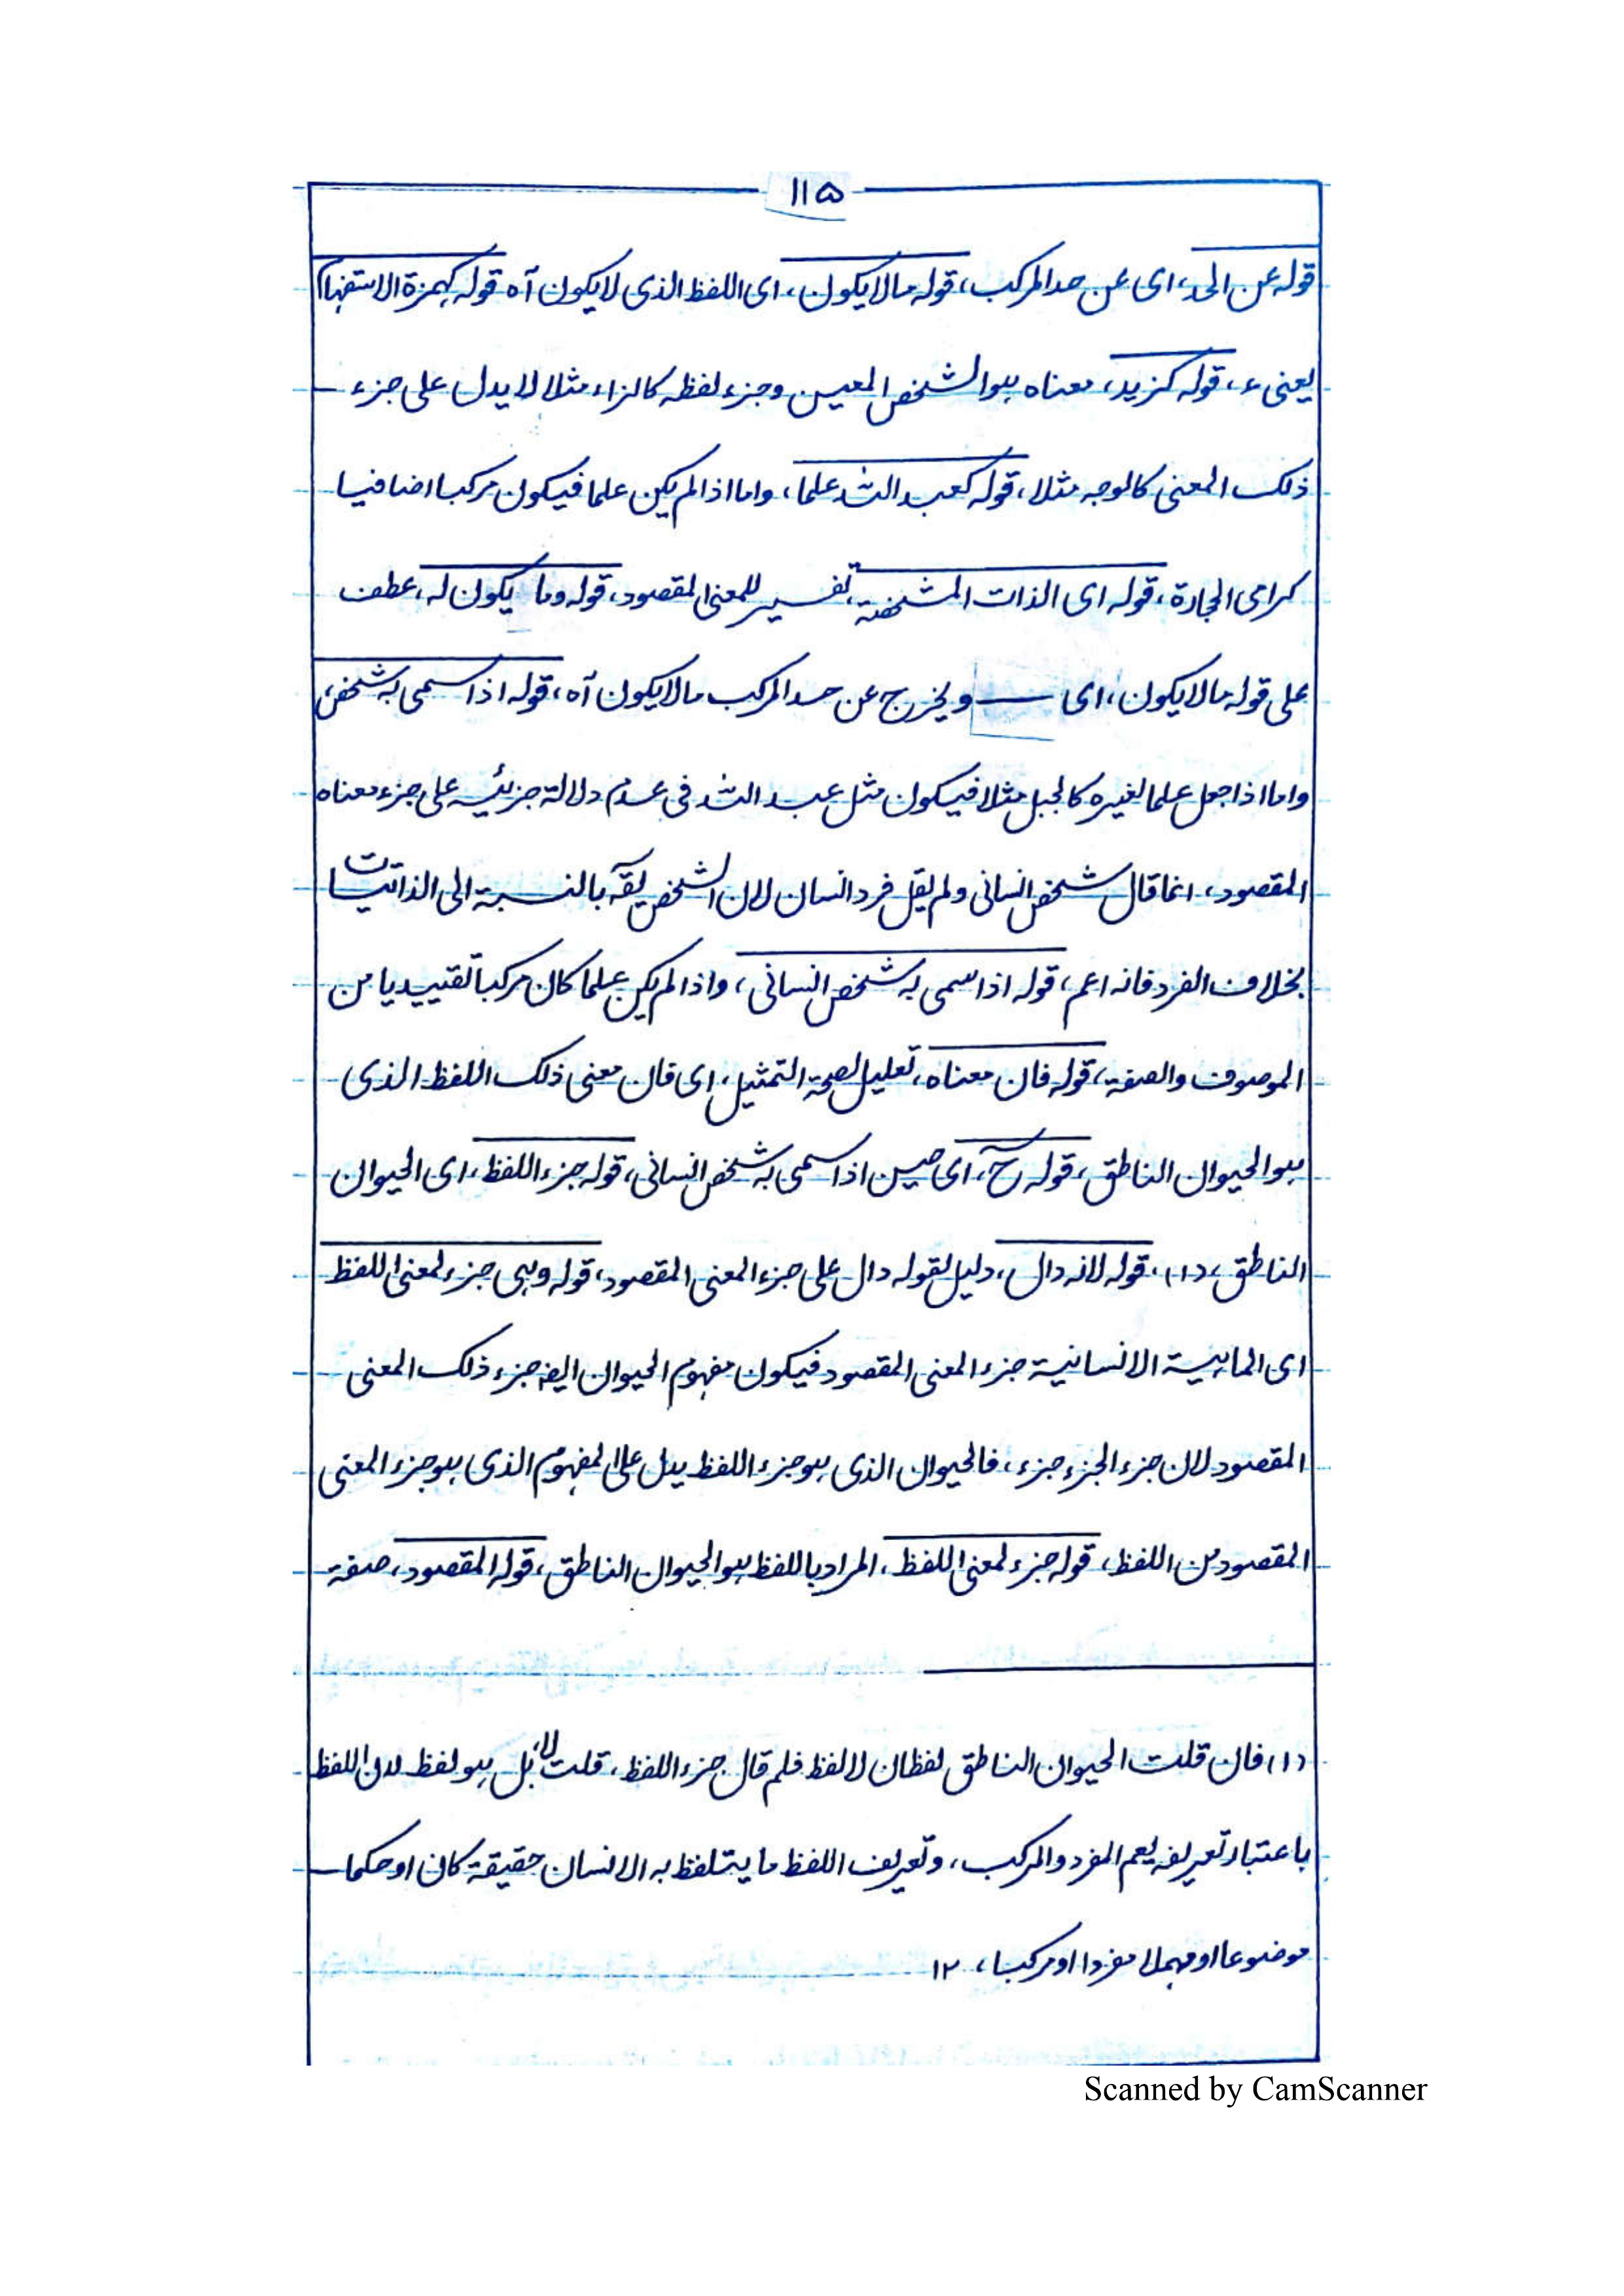 ۱۱۵
قوله عن الحد، اى عن حد المركب، قوله ما لا يكون، اى اللفظ الذى لا يكون آه قوله كهمزة الاستفهام
يعنى ء، قوله كزيد، معناه هو الشخص المعين وجزء لفظه كالزاء مثلا لا يدل على جزء
ذلك المعنى كالوجه مثلا، قوله كعبد الله علما، واما اذا لم يكن علما فيكون مركبا اضافيا
كرامى الحجارة، قوله اى الذات المشخصة، تفسير للمعنى المقصود، قوله وما يكون له، عطف
على قوله ما لا يكون، اى ويخرج عن حد المركب ما لا يكون آه، قوله اذا سمى به شخص،
واما اذا جعل علما لغيره كالجبل مثلا فيكون مثل عبد الله فى عدم دلالة جزئيه على جزء معناه
المقصود، انما قال شخص انسانى ولم يقل فرد انسان لان الشخص يقآ بالنسبة الى الذاتيات
بخلاف الفرد فانه اعم، قوله اذا سمى به شخص انسانى، واذا لم يكن علما كان مركبا تقييديا من
الموصوف والصفة، قوله فان معناه، تعليل لصحة التمثيل، اى فان معنى ذلك اللفظ الذى
هو الحيوان الناطق، قوله حٓ، اى حين اذا سمى به شخص انسانى، قوله جزء اللفظ، اى الحيوان
الناطق، (۱)، قوله لانه دال، دليل لقوله دال على جزء المعنى المقصود، قوله وهى جزء لمعنى اللفظ
اى الماهية الانسانية جزء المعنى المقصود فيكون مفهوم الحيوان ايضه جزء ذلك المعنى
المقصود لان جزء الجزء جزء، فالحيوان الذى هو جزء اللفظ يدل على المفهوم الذى هو جزء المعنى
المقصود من اللفظ، قوله جزء لمعنى اللفظ، المراد باللفظ هو الحيوان الناطق، قوله المقصود، صفة
(۱) فان قلت الحيوان الناطق لفظان لا لفظ فلم قال جزء اللفظ، قلت لا، بل هو لفظ لان اللفظ
باعتبار تعريفه يعم المفرد والمركب، وتعريف اللفظ ما يتلفظ به الانسان حقيقة كان او حكما
موضوعا او مهملا مفردا او مركبا، ۱۲
Scanned by CamScanner